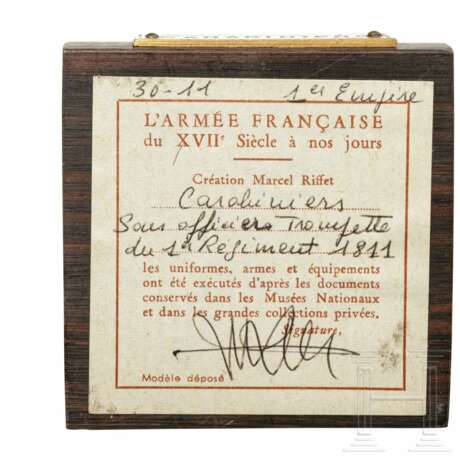 30-11 1er Empire
L'ARMÉE FRANÇAISE
du XVIIe Siècle à nos jours
Création Marcel Riffet
Carabiniers
Sous officier Trompette
du 1er Régiment 1811
les uniformes, armes et équipements
ont été exécutés d'après les documents
conservés dans les Musées Nationaux
et dans les grandes collections privées.
Signature,
Modèle déposé